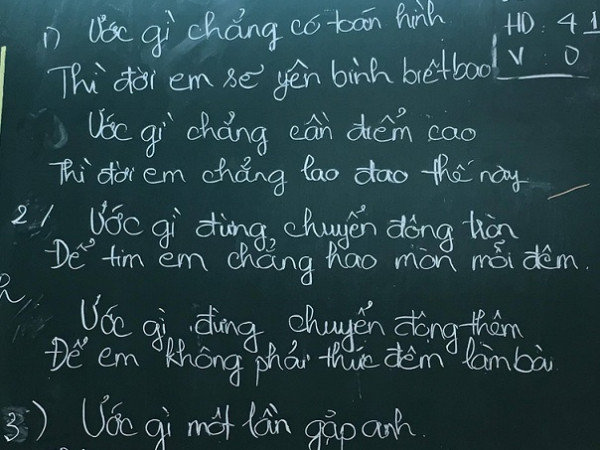 1) Ước gì chẳng có toán hình
Thì đời em sẽ yên bình biết bao
Ước gì chẳng cần điểm cao
Thì đời em chẳng lao đao thế này
2/ Ước gì đừng chuyển động tròn
Để tim em chẳng hao mòn mỗi đêm.
Ước gì đừng chuyển động thêm
Để em không phải thức đêm làm bài
3) Ước gì một lần gặp anh.
HD: 41
V: 0